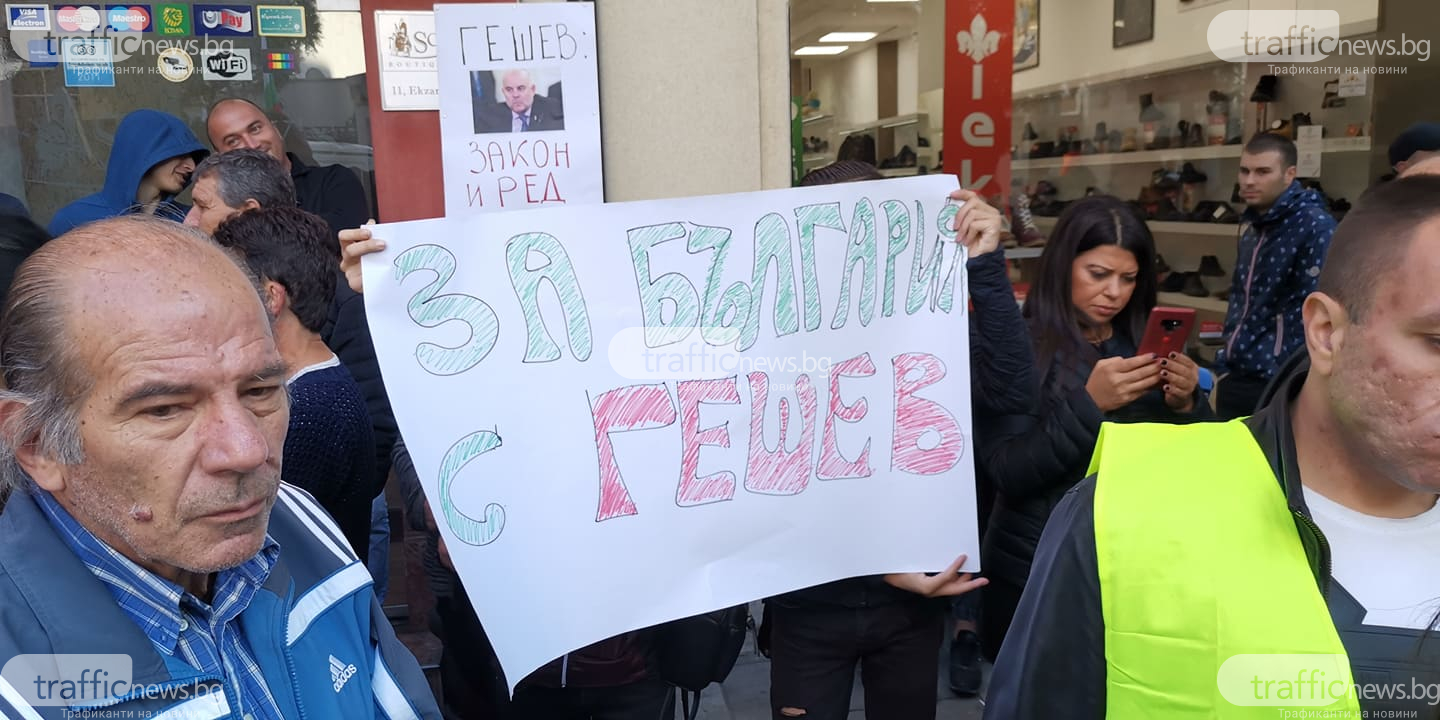 VISA
Electron
MasterCard
Maestro
BORICA
ePay
trafficnews.bg
Трафиканти на новини
WiFi
BOUTIQUE
11, Ekzar
ГЕШЕВ:
ЗАКОН
И РЕД
trafficnews.bg
Трафиканти на новини
iek
ЗА БЪЛГАРИЯ
С ГЕШЕВ
trafficnews.bg
Трафиканти на новини
adidas
trafficnews.bg
Трафиканти на новини
trafficnews.bg
Трафиканти на новини